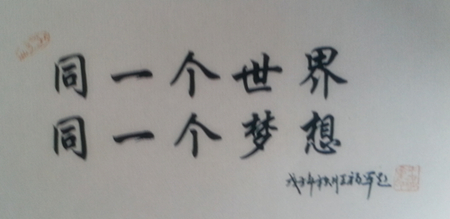 同一个世界
同一个梦想